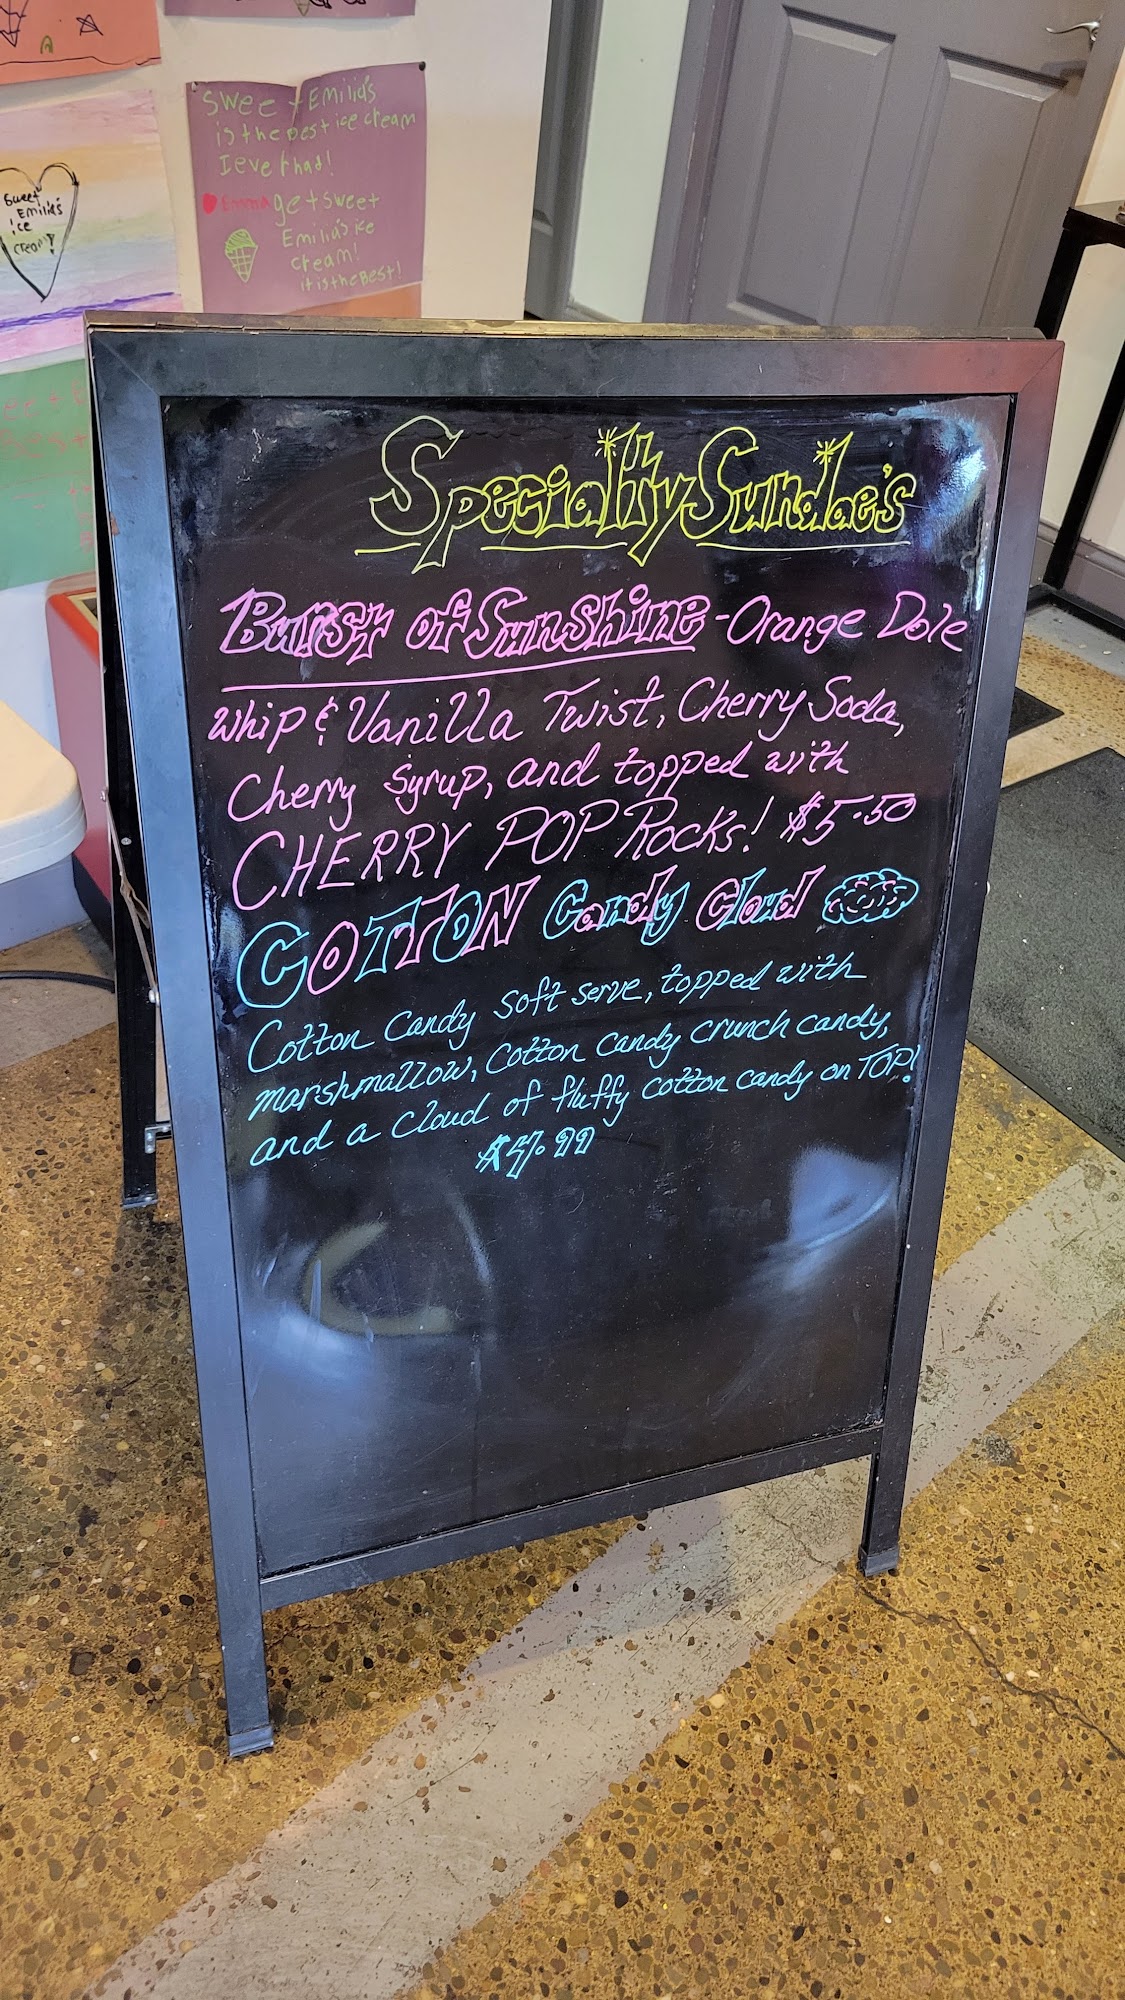 Sweet Emilia's
is the best ice cream
I ever had!
Emma get sweet
Emilia's ice
cream!
it is the Best!
Sweet
Emilia's
ice
cream!
Specialty Sundae's
Burst of Sunshine - Orange Dole
Whip & Vanilla Twist, Cherry Soda,
Cherry Syrup, and topped with
CHERRY POP Rocks! $5.50
COTTON Candy Cloud
Cotton Candy soft serve, topped with
marshmallow, cotton candy crunch candy,
and a cloud of fluffy cotton candy on TOP!